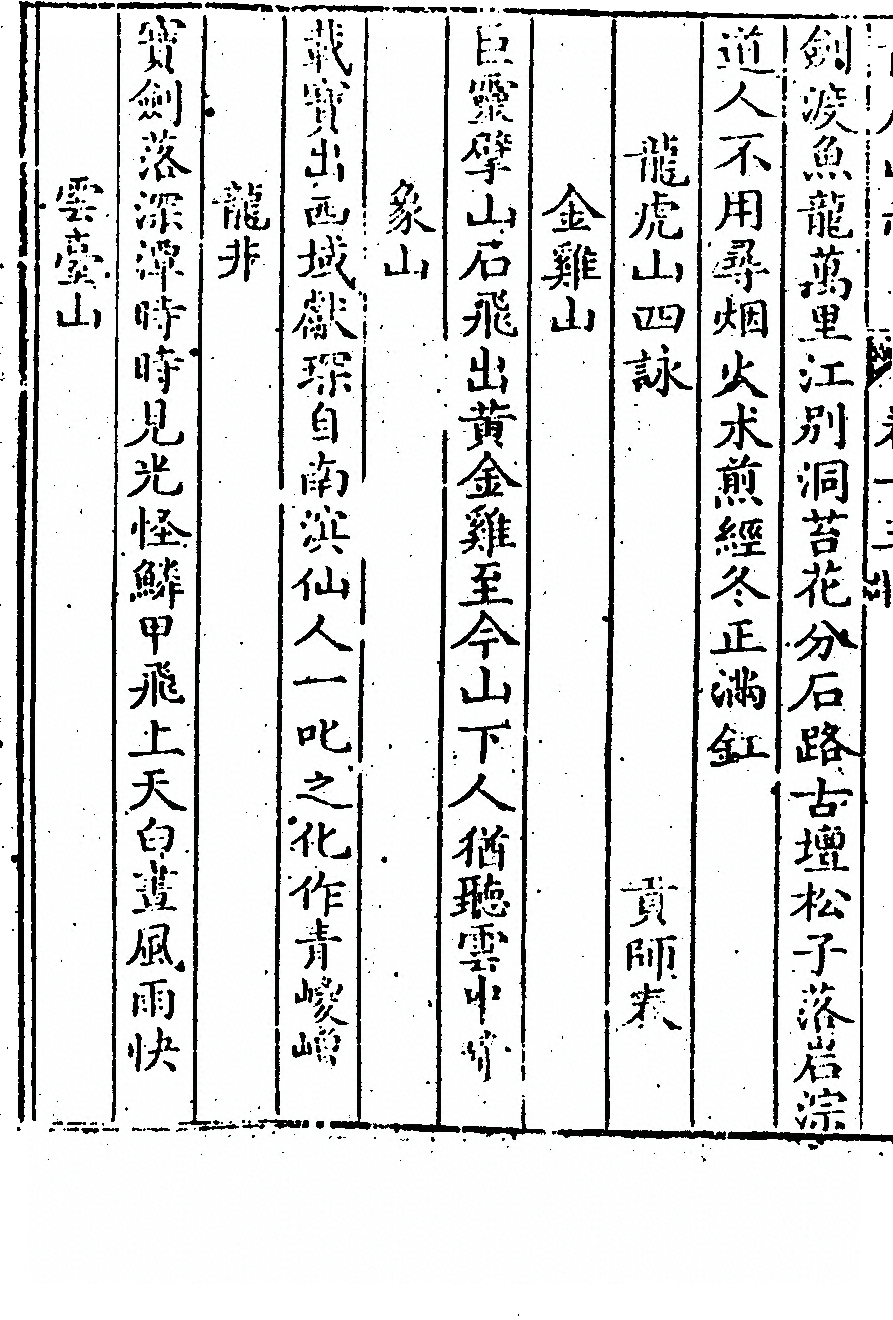 卷十三
劍渡魚龍萬里江別洞苔花分石路古壇松子落岩淙
道人不用尋烟火朮煎經冬正滿釭
龍虎山四詠 貢師泰
金雞山
巨靈擘山石飛出黃金雞至今山下人猶聽雲中
象山
載寶出西域獻琛自南濱仙人一叱之化作青崚嶒
龍井
寶劍落深潭時時見光怪鱗甲飛上天白晝風雨快
雲臺山